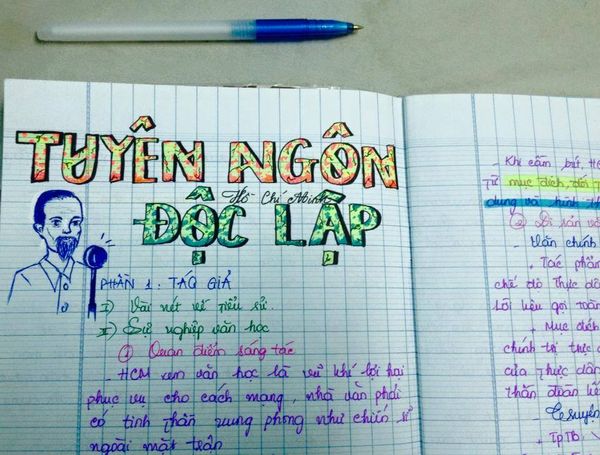 TUYÊN NGÔN
ĐỘC LẬP
Hồ Chí Minh
PHẦN 1: TÁC GIẢ
I) Vài nét về tiểu sử.
II) Sự nghiệp văn học
① Quan điểm sáng tác
- HCM xem văn học là vũ khí lợi hại
phục vụ cho cách mạng, nhà văn phải
có tinh thần xung phong như chiến sĩ
ngoài mặt trận
- Khi cầm bút, HC
Từ mục đích, đối
dung và hình th
② Di sản vă
- Văn chính
+ Tác phẩm
chế độ thực dâ
lời kêu gọi toàn
+ Mục đích
chính trị trực
của thực dân
thần đoàn kế
- Truyện
+ TpTB: